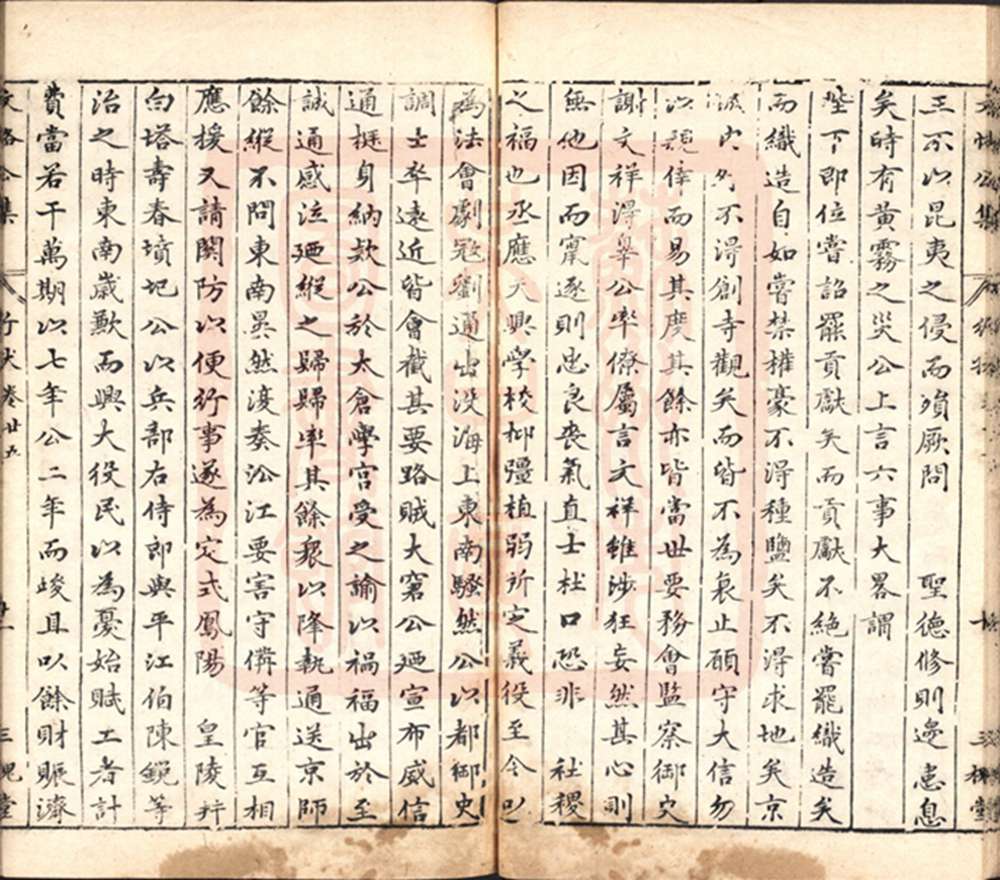 王不以昆夷之侵而殞厥問　聖德修則邊患息
矣時有黃霧之災公上言六事大畧謂
陛下即位嘗詔罷貢獻矣而貢獻不絶嘗罷織造矣
而織造自如嘗禁權豪不得種鹽矣不得求地矣京
城內外不得創寺觀矣而皆不為哀止願守大信勿
以親倖而易其度其餘亦皆當世要務會監察御史
謝文祥得辠公率僚屬言文祥雖涉狂妄然其心則
無他因而竄逐則忠良喪氣直士杜口恐非　社稷
之福也丞應天興學校抑彊植弱所定義役至今以
為法會劇寇劉通出沒海上東南騷然公以都御史
調士卒遠近皆會截其要路賊大窘公廼宣布威信
通挺身納欵公於太倉學宮受之諭以禍福出於至
誠通感泣廼縱之歸歸率其餘衆以降執通送京師
餘縱不問東南晏然復奏㳂江要害守備等官互相
應援又請關防以便行事遂為定式鳳陽　皇陵并
白塔壽春墳圮公以兵部右侍郎與平江伯陳銳等
治之時東南歲歉而興大役民以為憂始賦工者計
費當若干萬期以七年公二年而竣且以餘財賑濟
卷廿五